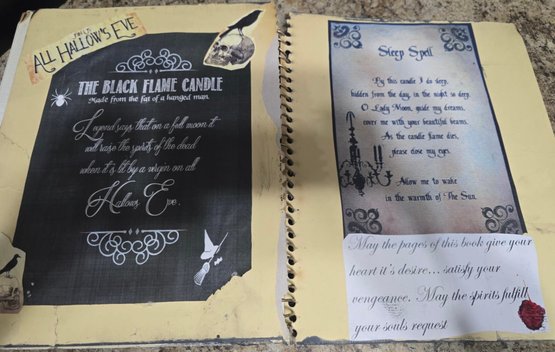 ALL HALLOW'S EVE
THE BLACK FLAME CANDLE
Made from the fat of a hanged man.
Legend says that on a full moon it
will raise the spirits of the dead
when it is lit by a virgin on all
Hallows Eve.
Sleep Spell
By this candle I do sleep,
hidden from the day, in the night so deep.
O Lady Moon, guide my dreams,
cover me with your beautiful beams.
As the candle flame dies,
please close my eyes.
Allow me to wake
in the warmth of The Sun.
May the pages of this book give your
heart it's desire... satisfy your
vengeance. May the spirits fulfill
your souls request